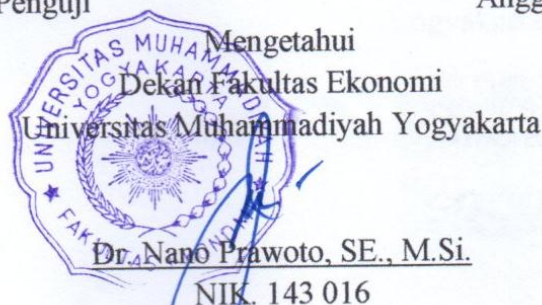 Penguji Angg
Mengetahui
Dekan Fakultas Ekonomi
Universitas Muhammadiyah Yogyakarta
UNIVERSITAS MUHAMMADIYAH
YOGYAKARTA
FAKULTAS
Dr. Nano Prawoto, SE., M.Si.
NIK. 143 016